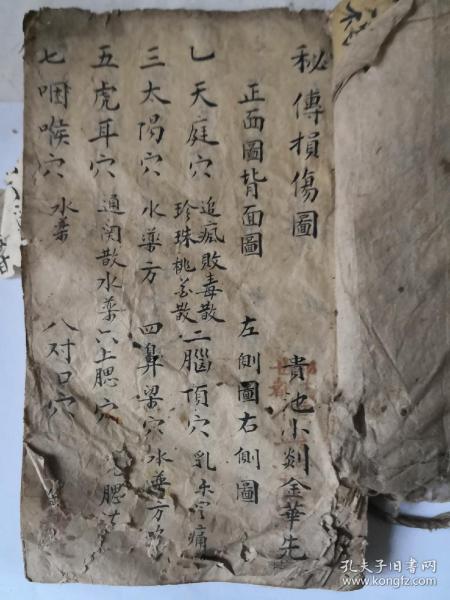 秘傳損傷圖 貴池小剡金華先
正面圖背面圖 左側圖右側圖
乚天庭穴 追瘋敗毒散 珍珠桃花散 二腦頂穴 乳
三太陽穴 水藥方 四鼻梁穴 水藥方
五虎耳穴 通関散水藥 六上腮穴 腮
七咽喉穴 水藥 八对口穴
孔夫子旧书网
www.kongfz.com